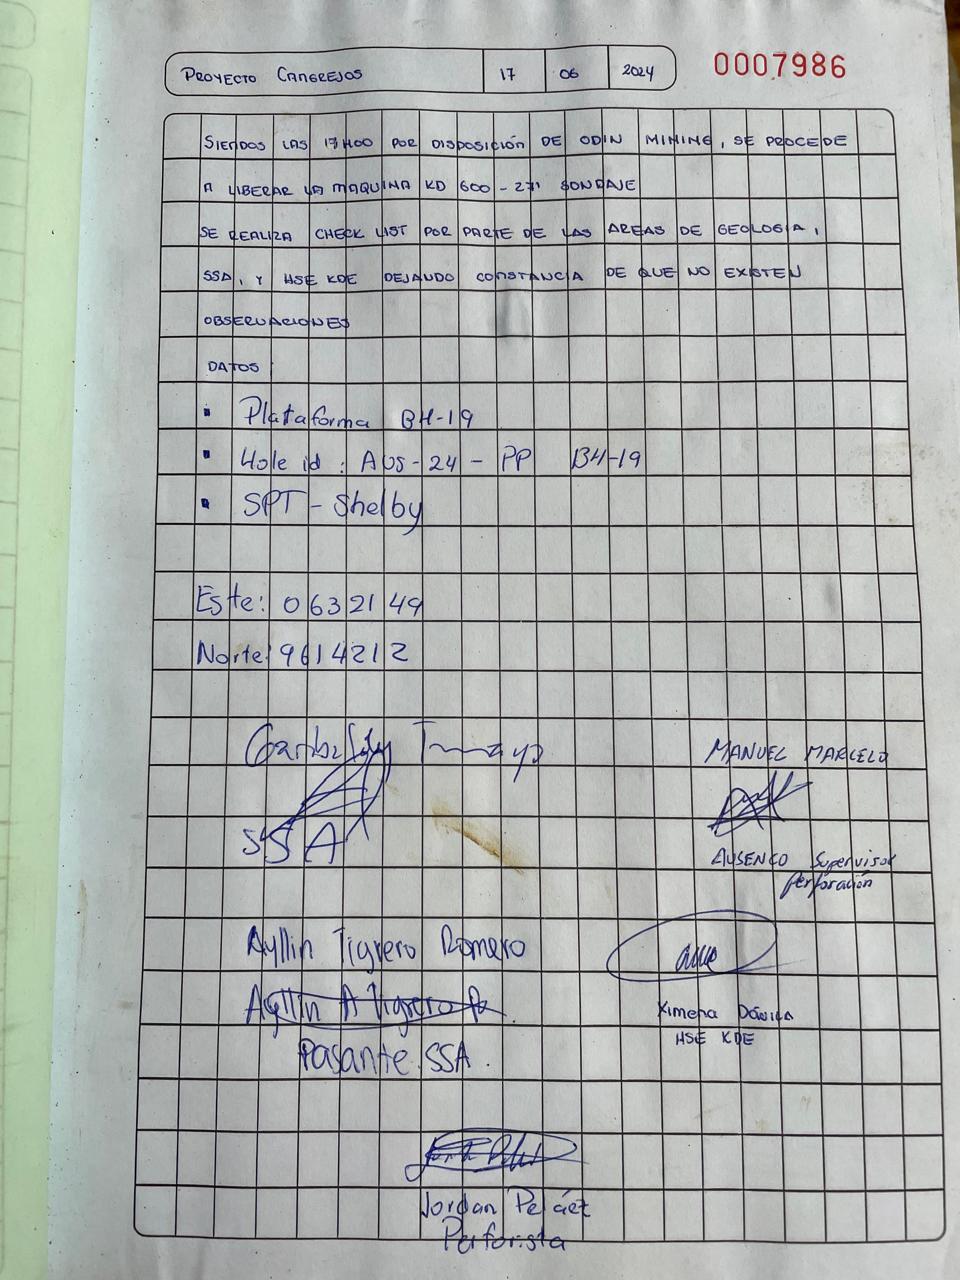 PROYECTO CANGREJOS 17 06 2024 0007986
SIENDOS LAS 17H00 POR DISPOSICIÓN DE ODIN MINING, SE PROCEDE
A LIBERAR LA MAQUINA KD 600-271 SONDAJE
SE REALIZA CHECK LIST POR PARTE DE LAS AREAS DE GEOLOGIA,
SSA, Y HSE KDE DEJANDO CONSTANCIA DE QUE NO EXISTEN
OBSERVACIONES
DATOS:
▪ Plataforma BH-19
▪ Hole id: AUS-24-PP BH-19
▪ SPT-Shelby
Este: 0632149
Norte: 9614212
Garibaldy Tamayo
SSA
MANUEL MARCELO
AUSENCO Supervisor
perforación
Ayllin Tigrero Romero
Ayllin A Tigrero R.
Pasante SSA.
Ximena Dávila
HSE KDE
Jordan Peláez
Perforista